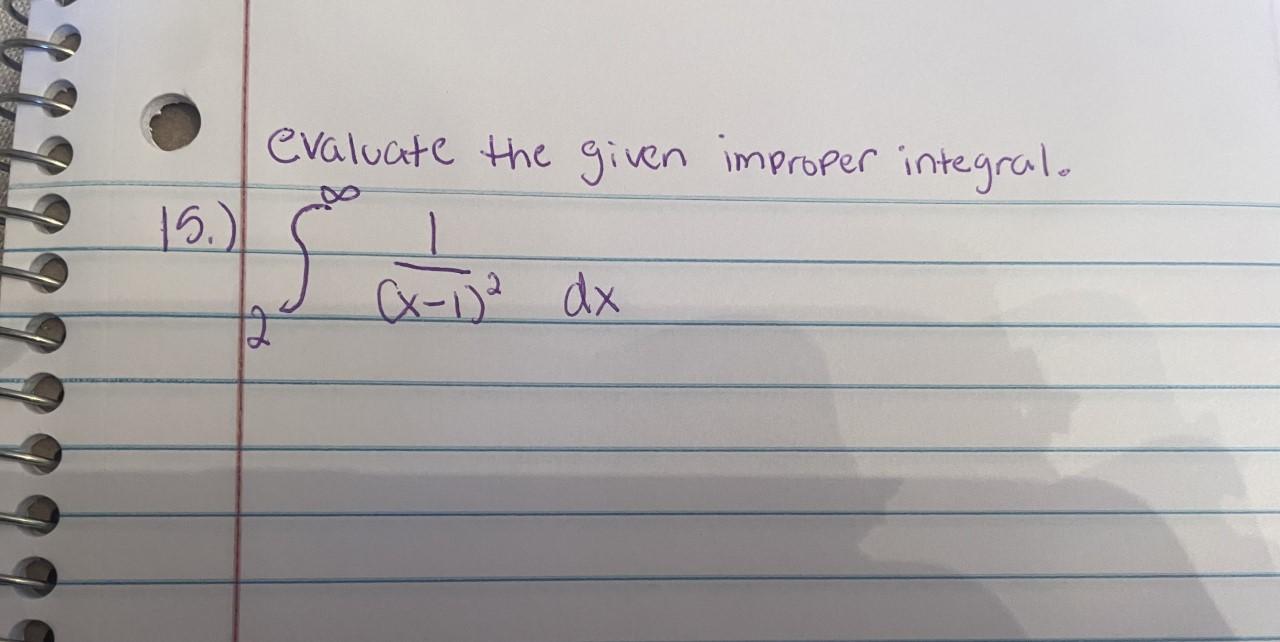 evaluate the given improper integral.
15.) ∫₂^∞ 1/(x-1)² dx